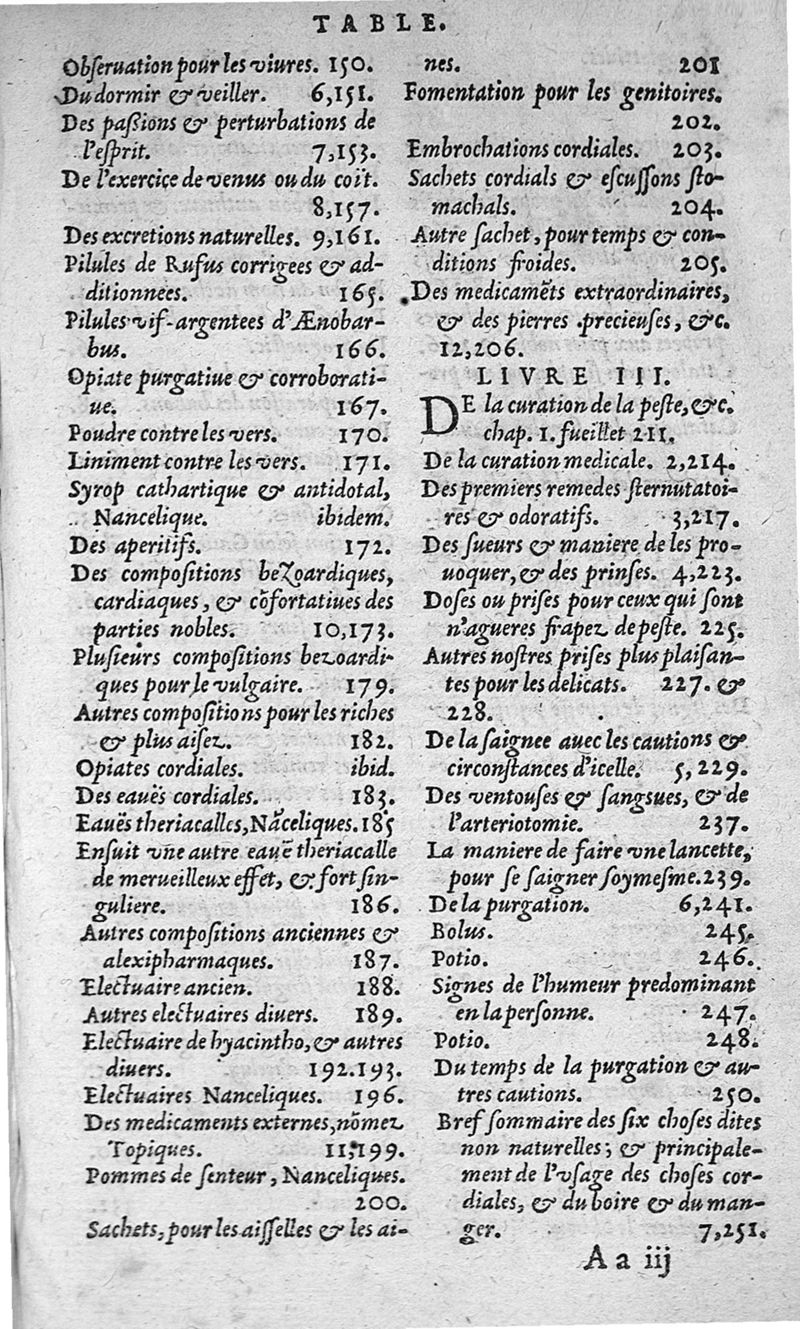 TABLE.
Obſeruation pour les viures. 150.
Du dormir & veiller. 6,151.
Des paſſions & perturbations de
l'eſprit. 7,153.
De l'exercice de venus ou du coït.
8,157.
Des excretions naturelles. 9,161.
Pilules de Rufus corrigees & ad-
ditionnees. 165.
Pilules vif-argentees d'Ænobar-
bus. 166.
Opiate purgatiue & corroborati-
ue. 167.
Poudre contre les vers. 170.
Liniment contre les vers. 171.
Syrop cathartique & antidotal,
Nancelique. ibidem.
Des aperitifs. 172.
Des compoſitions beZoardiques,
cardiaques, & cõfortatiues des
parties nobles. 10,173.
Pluſieurs compoſitions bezoardi-
ques pour le vulgaire. 179.
Autres compoſitions pour les riches
& plus aiſez. 182.
Opiates cordiales. ibid.
Des eauës cordiales. 183.
Eauës theriacalles, Nãceliques. 185
Enſuit vne autre eauë theriacalle
de merueilleux effet, & fort ſin-
guliere. 186.
Autres compoſitions anciennes &
alexipharmaques. 187.
Electuaire ancien. 188.
Autres electuaires diuers. 189.
Electuaire de hyacintho, & autres
diuers. 192.193.
Electuaires Nanceliques. 196.
Des medicaments externes, nõmez
Topiques. 11,199.
Pommes de ſenteur, Nanceliques.
200.
Sachets, pour les aiſſelles & les ai-
nes. 201
Fomentation pour les genitoires.
202.
Embrochations cordiales. 203.
Sachets cordials & eſcuſſons ſto-
machals. 204.
Autre ſachet, pour temps & con-
ditions froides. 205.
Des medicamẽts extraordinaires,
& des pierres precieuſes, &c.
12,206.
LIVRE III.
DE la curation de la peſte, &c.
chap. 1. fueillet 211.
De la curation medicale. 2,214.
Des premiers remedes ſternutatoi-
res & odoratifs. 3,217.
Des ſueurs & maniere de les pro-
uoquer, & des prinſes. 4,223.
Doſes ou priſes pour ceux qui ſont
n'agueres frapez de peſte. 225.
Autres noſtres priſes plus plaiſan-
tes pour les delicats. 227. &
228.
De la ſaignee auec les cautions &
circonſtances d'icelle. 5,229.
Des ventouſes & ſangsues, & de
l'arteriotomie. 237.
La maniere de faire vne lancette,
pour ſe ſaigner ſoymeſme. 239.
De la purgation. 6,241.
Bolus. 245.
Potio. 246.
Signes de l'humeur predominant
en la perſonne. 247.
Potio. 248.
Du temps de la purgation & au-
tres cautions. 250.
Bref ſommaire des ſix choſes dites
non naturelles; & principale-
ment de l'vſage des choſes cor-
diales, & du boire & du man-
ger. 7,251.
A a iij